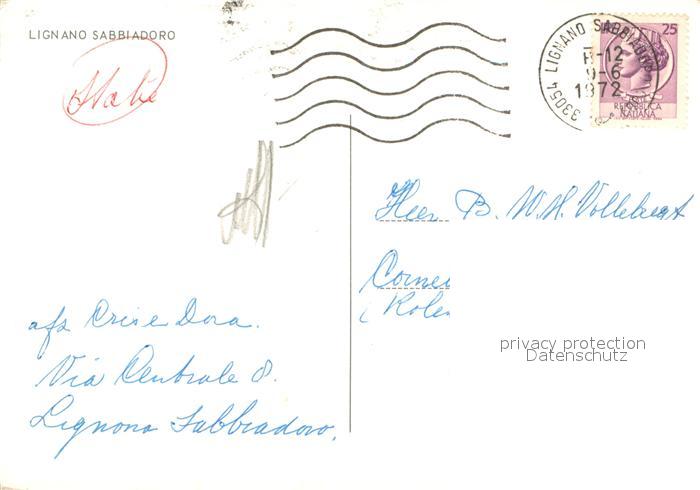 LIGNANO SABBIADORO
Italie
33054 LIGNANO SABBIADORO
H-12
9-6
1972
25
REPUBBLICA
ITALIANA
Heer B. W. H.
Cornel
afz Cris e Dora.
Via Centrale 8.
Lignono Sabbiadoro.
privacy protection
Datenschutz